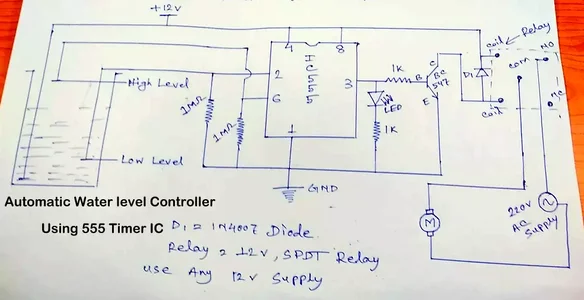 +12V
Relay
coil
NO
com
4
8
IC 555
2
3
6
1
1K
C
B
BC 547
E
D1
NC
coil
High Level
1MΩ
1MΩ
LED
1K
Low Level
GND
M
220V AC Supply
Automatic Water level Controller
Using 555 Timer IC
D1 = 1N4007 Diode
Relay = 12V, SPDT Relay
Use Any 12V Supply